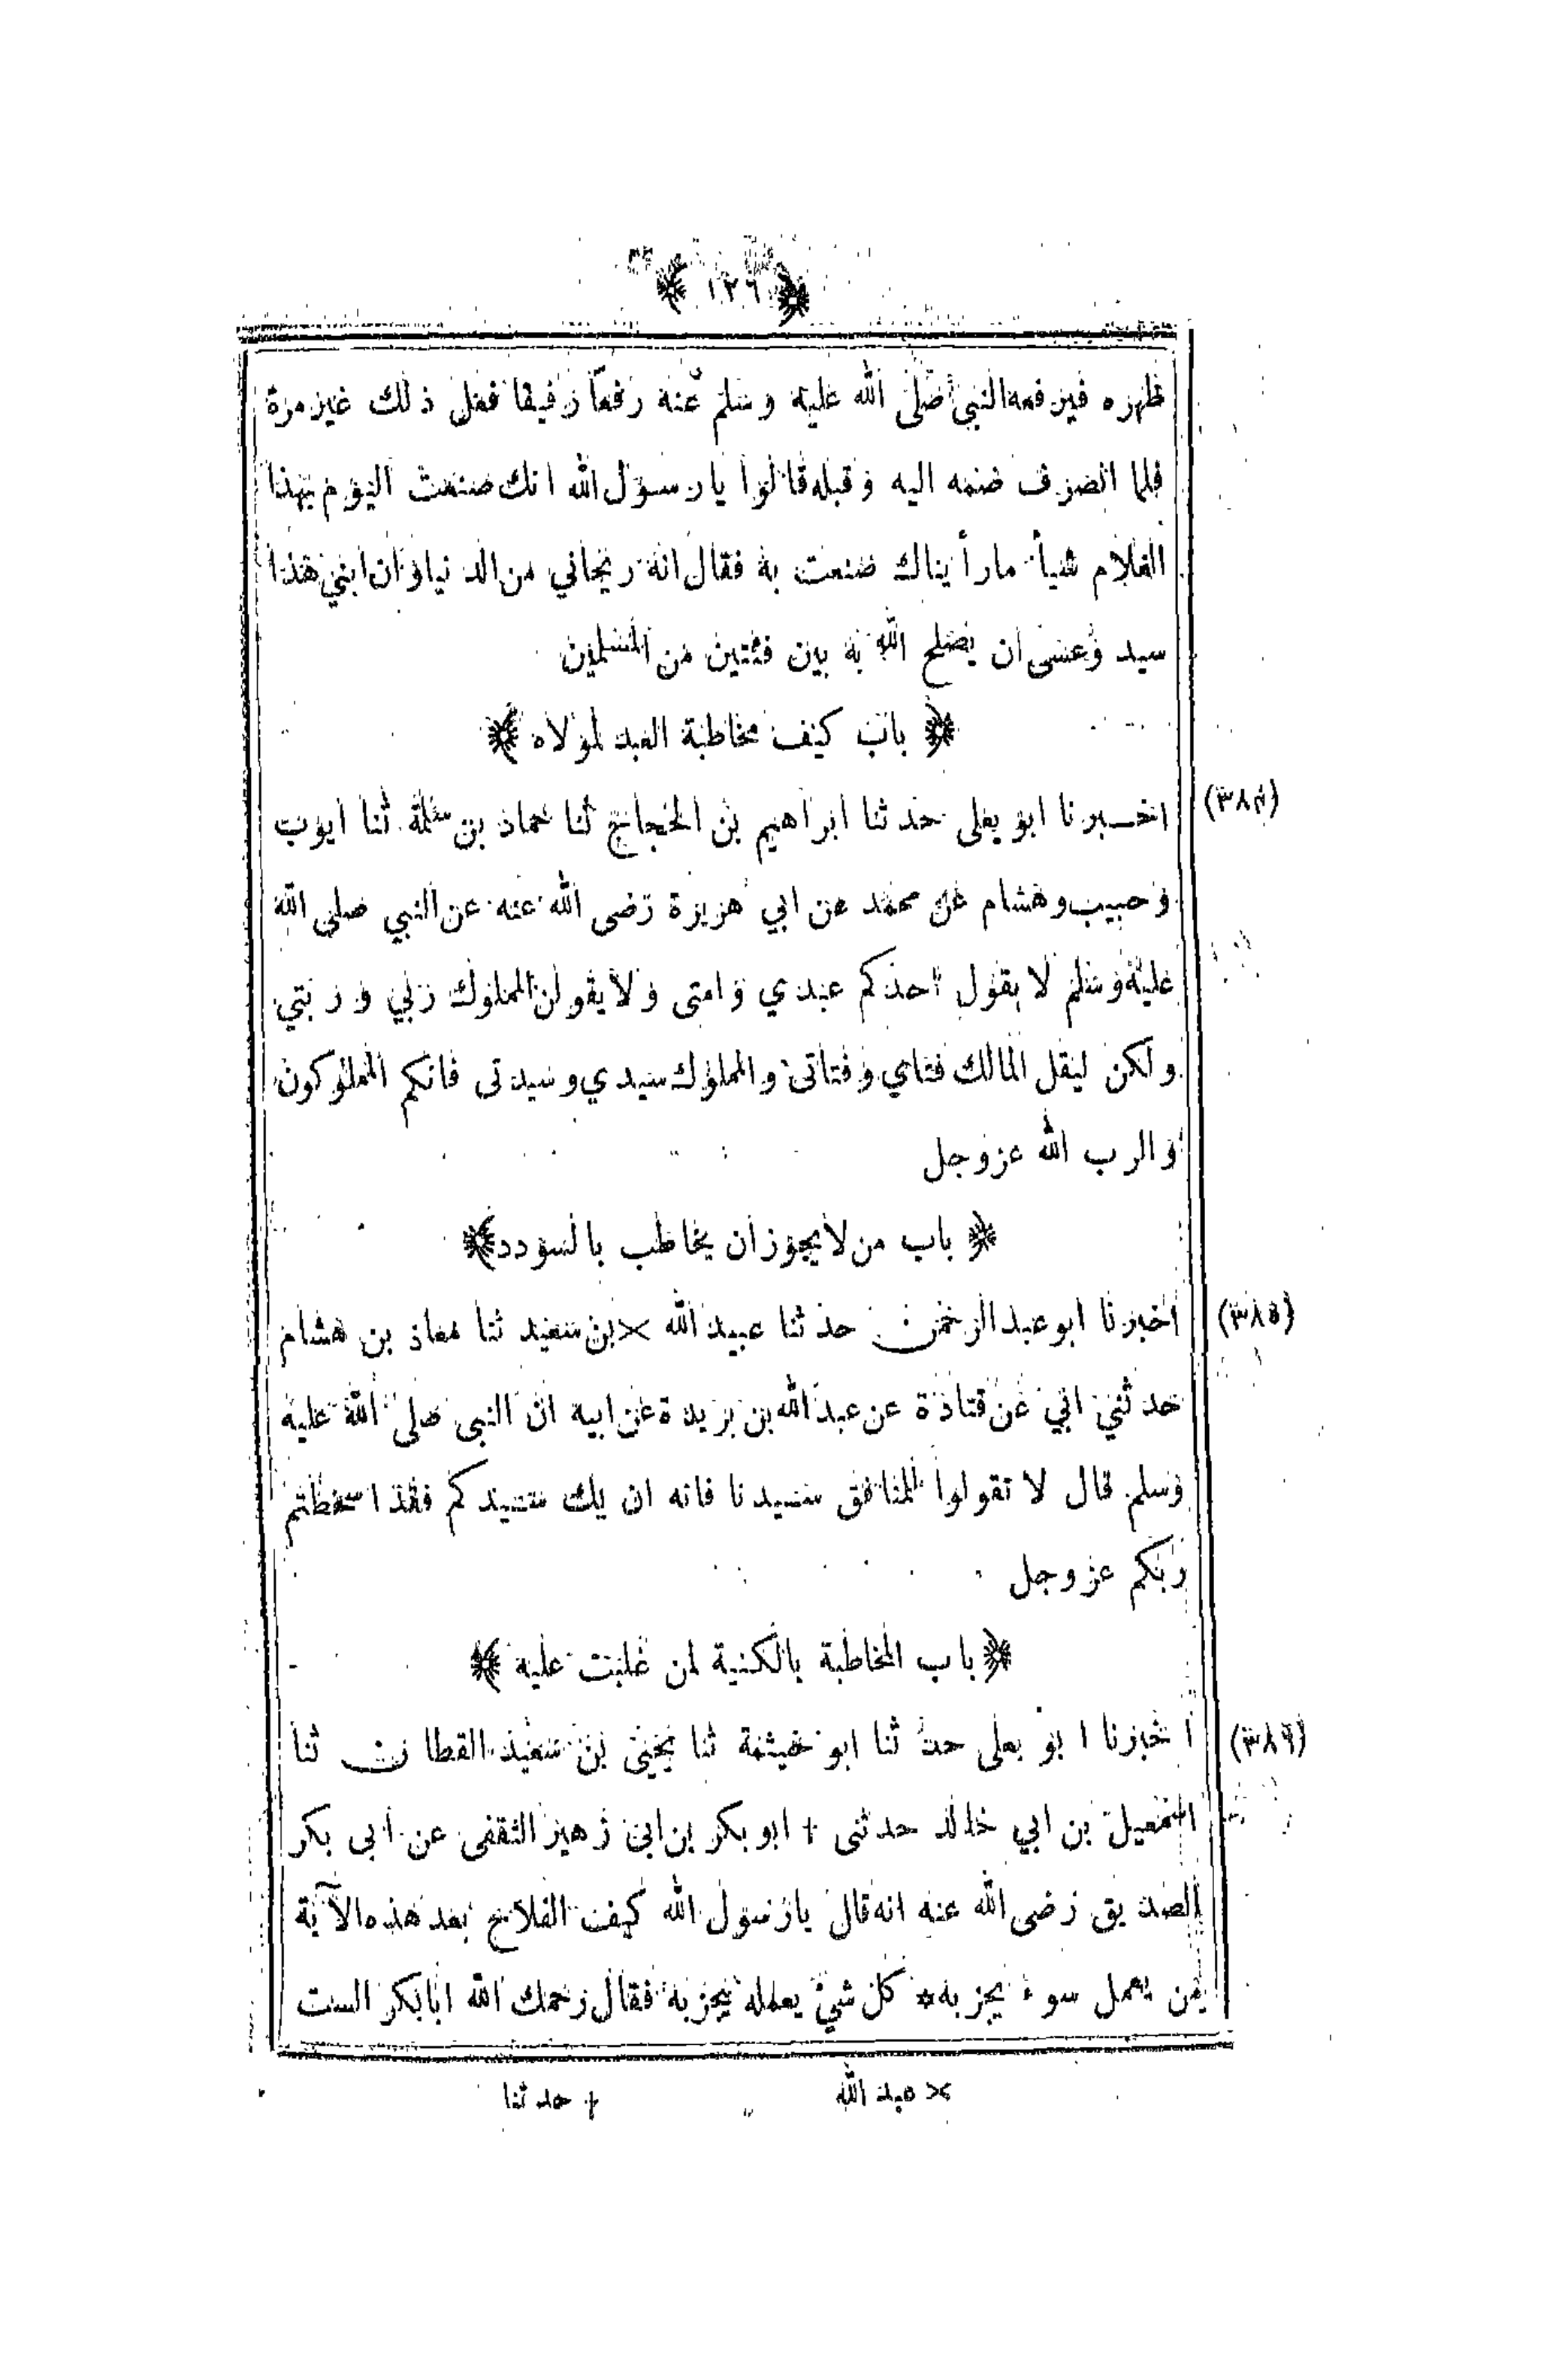 ﴿ ١٢٦ ﴾
ظهره فيرفعه النبي صلى الله عليه وسلم عنه رفعاً رفيقا ففعل ذلك غير مرة
فلما انصرف ضمه اليه وقبله قالوا يا رسول الله انك صنعت اليوم بهذا
الغلام شيأ ما رأيناك صنعت به فقال انه ريحاني من الدنيا وان ابني هذا
سيد وعسى ان يصلح الله به بين فئتين من المسلمين
﴿ باب كيف مخاطبة العبد لمولاه ﴾
(٣٨٤) اخبرنا ابو يعلى حدثنا ابراهيم بن الحجاج ثنا حماد بن سلمة ثنا ايوب
وحبيب وهشام عن محمد عن ابي هريرة رضى الله عنه عن النبي صلى الله
عليه وسلم لا يقول احدكم عبدي وامتى ولا يقولن المملوك ربي وربتي
ولكن ليقل المالك فتاي وفتاتى والمملوك سيدي وسيدتى فانكم المملوكون
والرب الله عز وجل
﴿ باب من لا يجوز ان يخاطب بالسودد ﴾
(٣٨٥) أخبرنا ابو عبد الرحمن حدثنا عبيد الله × بن سعيد ثنا معاذ بن هشام
حدثني ابي عن قتادة عن عبد الله بن بريدة عن ابيه ان النبى صلى الله عليه
وسلم قال لا تقولوا للمنافق سيدنا فانه ان يك سيدكم فقد اسخطتم
ربكم عز وجل
﴿ باب المخاطبة بالكنية لمن غلبت عليه ﴾
(٣٨٦) اخبرنا ابو يعلى حدثنا ابو خيثمة ثنا يحيى بن سعيد القطان ثنا
اسمعيل بن ابي خالد حدثنى + ابو بكر بن ابى زهير الثقفى عن ابى بكر
الصديق رضى الله عنه انه قال يا رسول الله كيف الفلاح بعد هذه الآية
من يعمل سوء يجز به * كل شيئ يعمله يجز به فقال رحمك الله ابا بكر الست
× عبد الله + حدثنا